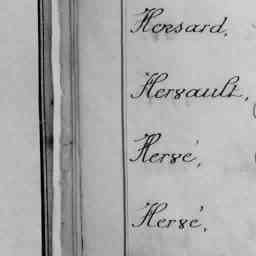 Hersard,
Hersault,
Hersé,
Hersé,